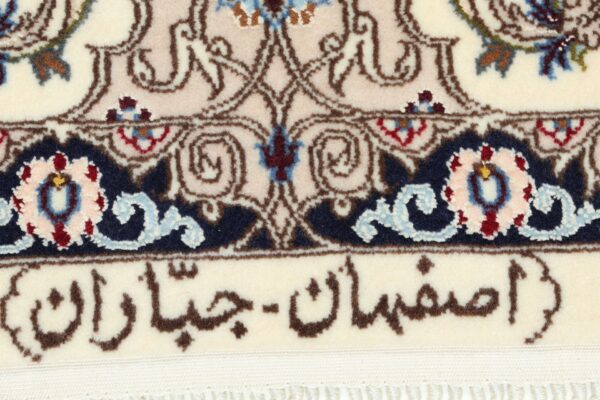 (اصفهان - جبّاران)